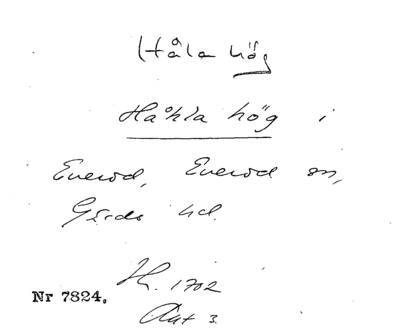 Håla hög
Håhla hög i
Everöd, Everöd sn,
Gärds hd.
H. 1702
Nr 7824. Akt 3.